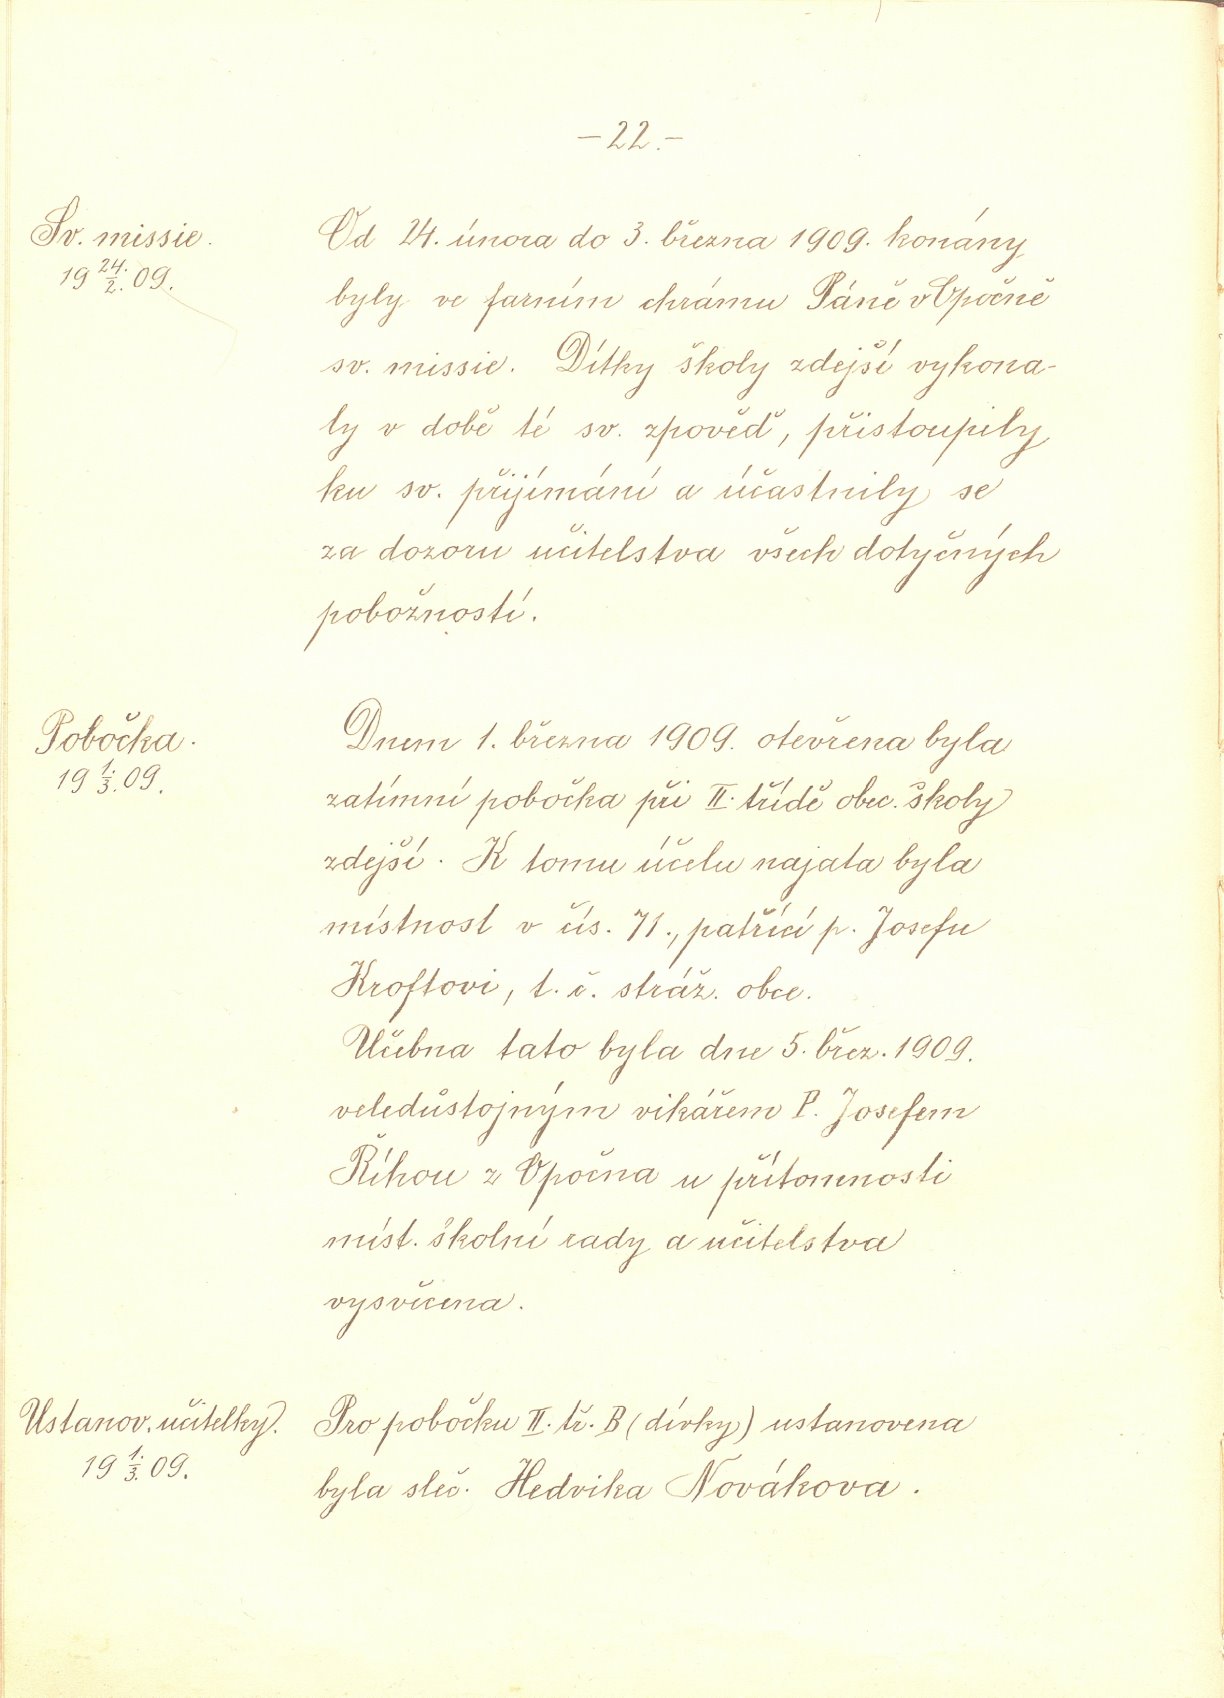 – 22. –
Sv. missie.
19 24./2. 09.
Od 24. února do 3. března 1909. konány
byly ve farním chrámu Páně v Opočně
sv. missie. Dítky školy zdejší vykona-
ly v době té sv. zpověď, přistoupily
ku sv. přijímání a účastnily se
za dozoru učitelstva všech dotyčných
pobožností.
Pobočka.
19 1./3. 09.
Dnem 1. března 1909. otevřena byla
zatímní pobočka při II. třídě obec. školy
zdejší. K tomu účelu najata byla
místnost v čís. 71., patřící p. Josefu
Kroftovi, t. č. stráž. obce.
Učebna tato byla dne 5. břez. 1909.
veledůstojným vikářem P. Josefem
Říhou z Opočna u přítomnosti
míst. školní rady a učitelstva
vysvěcena.
Ustanov. učitelky.
19 1./3. 09.
Pro pobočku II. tř. B (dívky) ustanovena
byla sleč. Hedvika Novákova.